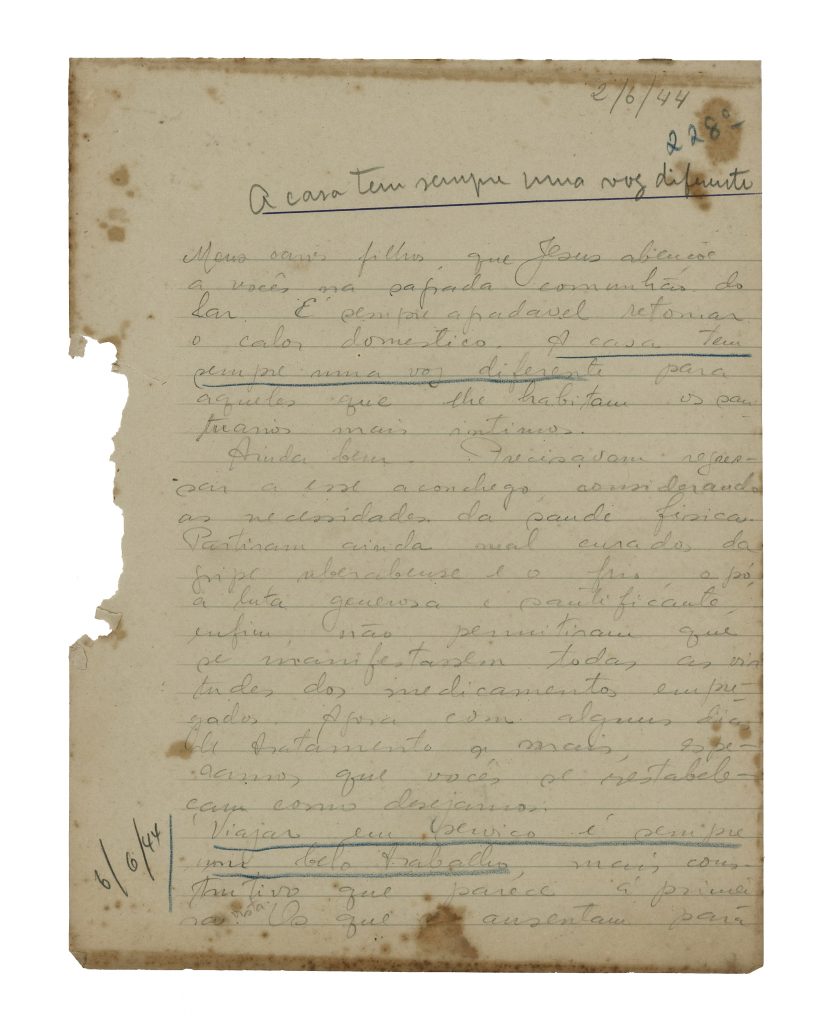 2/6/44
228ª
A casa tem sempre uma voz diferente
Meus caros filhos, que Jesus abençoe
a vocês na sagrada comunhão do
Lar. É sempre agradavel retomar
o calor domestico. A casa tem
sempre uma voz diferente para
aqueles que lhe habitam os san
tuarios mais intimos.
Ainda bem. Precisavam regres-
sar a esse aconchego, considerando
as necessidades da saude fisica.
Partiram ainda mal curados da
gripe uberabense e o frio, o pó,
a luta generosa e santificante,
enfim, não permitiram que
se manifestassem todas as vir
tudes dos medicamentos empre-
gados. Agora com alguns dias
de tratamento a mais, espe-
ramos que vocês se restabele-
çam como desejamos.
Viajar em serviço é sempre
um belo trabalho, mais cons-
trutivo que parece á primei
ra vista. Os que se ausentam para
6/6/44